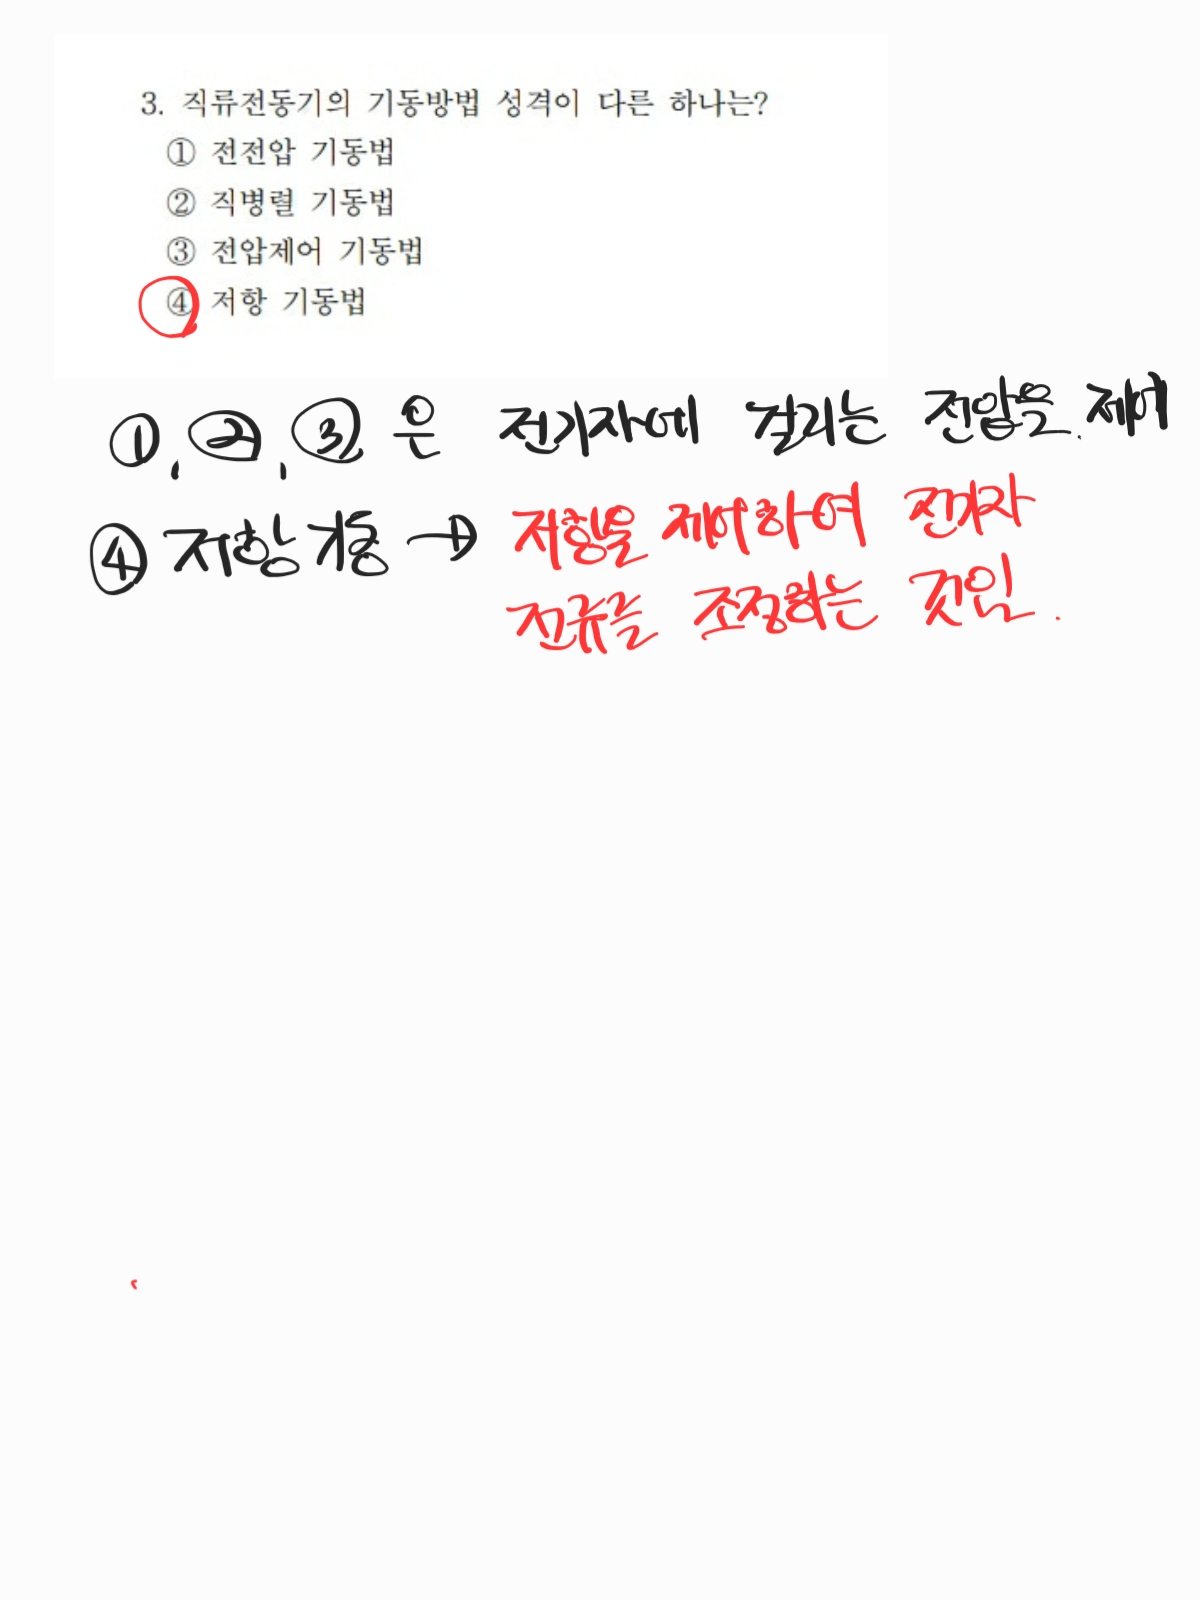 3. 직류전동기의 기동방법 성격이 다른 하나는?
① 전전압 기동법
② 직병렬 기동법
③ 전압제어 기동법
④ 저항 기동법
①, ②, ③ 은 전기자에 걸리는 전압을 제어
④ 저항 기동 → 저항을 제어하여 전기자
전류를 조정하는 것임.